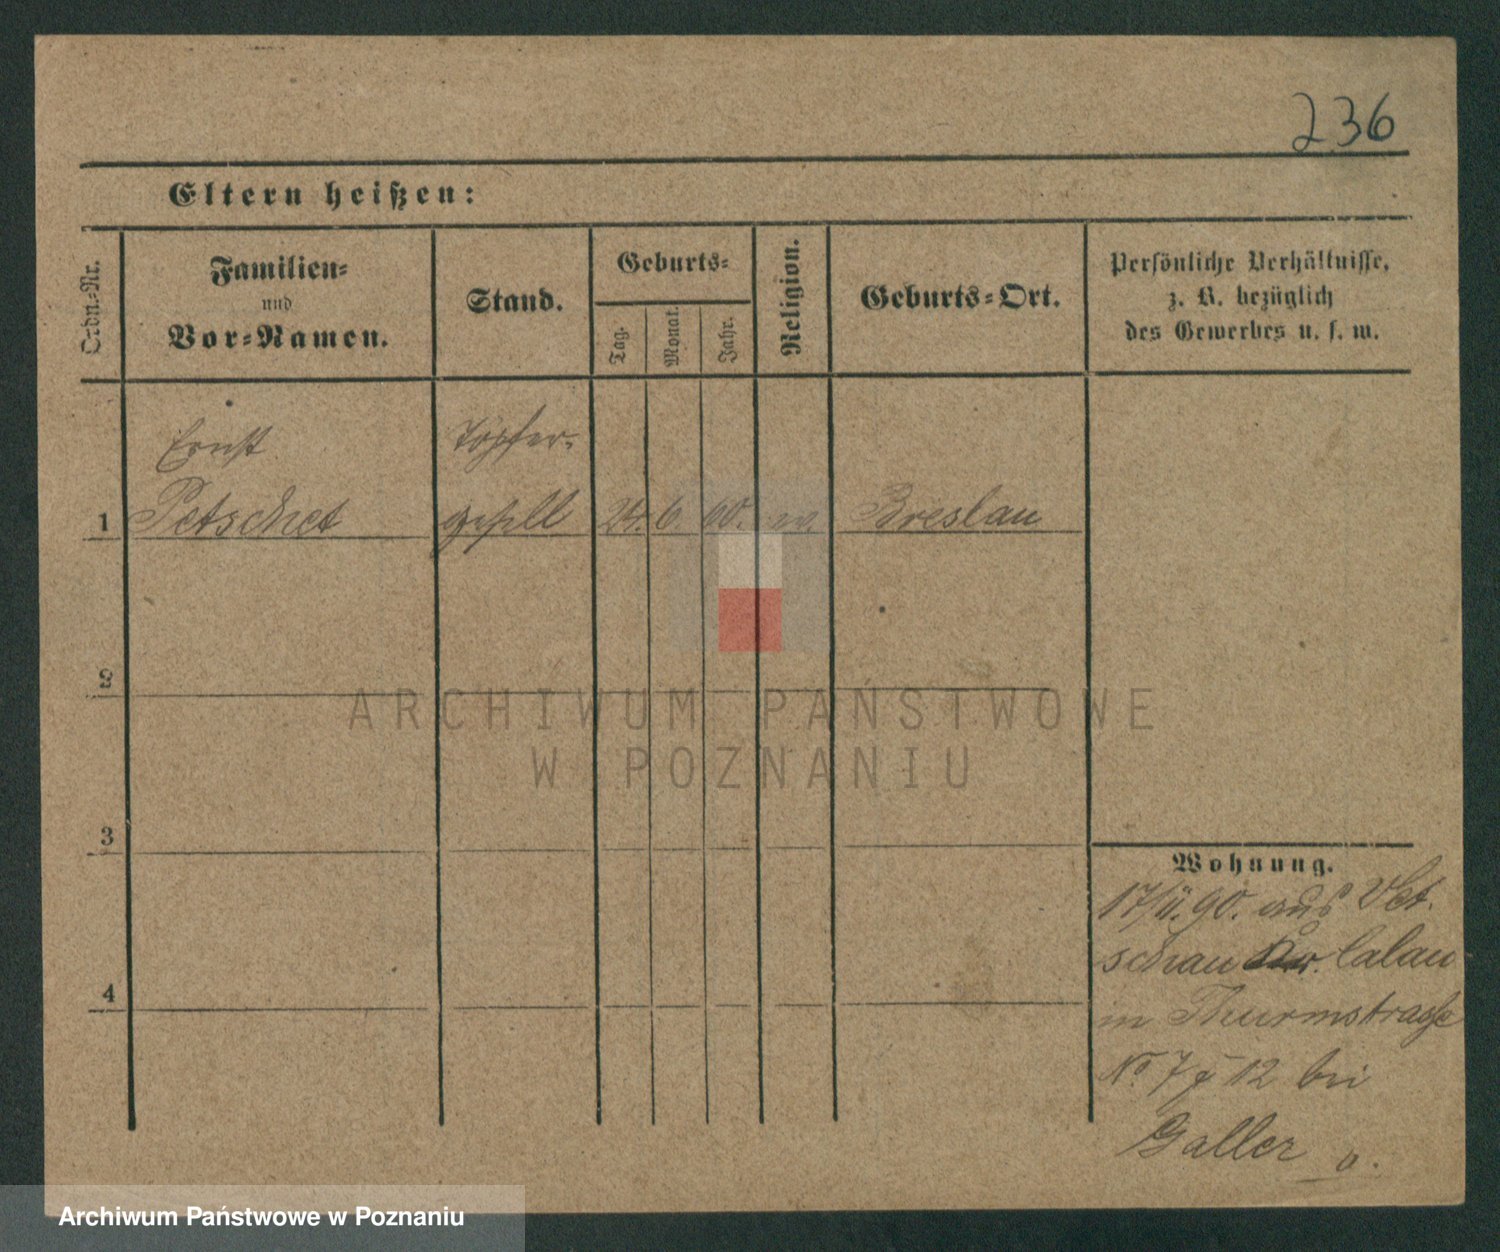 236
Eltern heißen:
Ordn.-Nr.
Familien-
und
Vor-Namen.
Stand.
Geburts-
Tag.
Monat.
Jahr.
Religion.
Geburts-Ort.
Persönliche Verhältnisse,
z. B. bezüglich
des Gewerbes u. s. w.
Ernst Töpfer-
1 Petschet gesell 24. 6. 60. ev. Breslau
2
3
4
Wohnung.
17/11. 90. aus Vet-
schau Calau
in Thurmstrasse
No 7 12 bei
Galler
ARCHIWUM PAŃSTWOWE
W POZNANIU
Archiwum Państwowe w Poznaniu